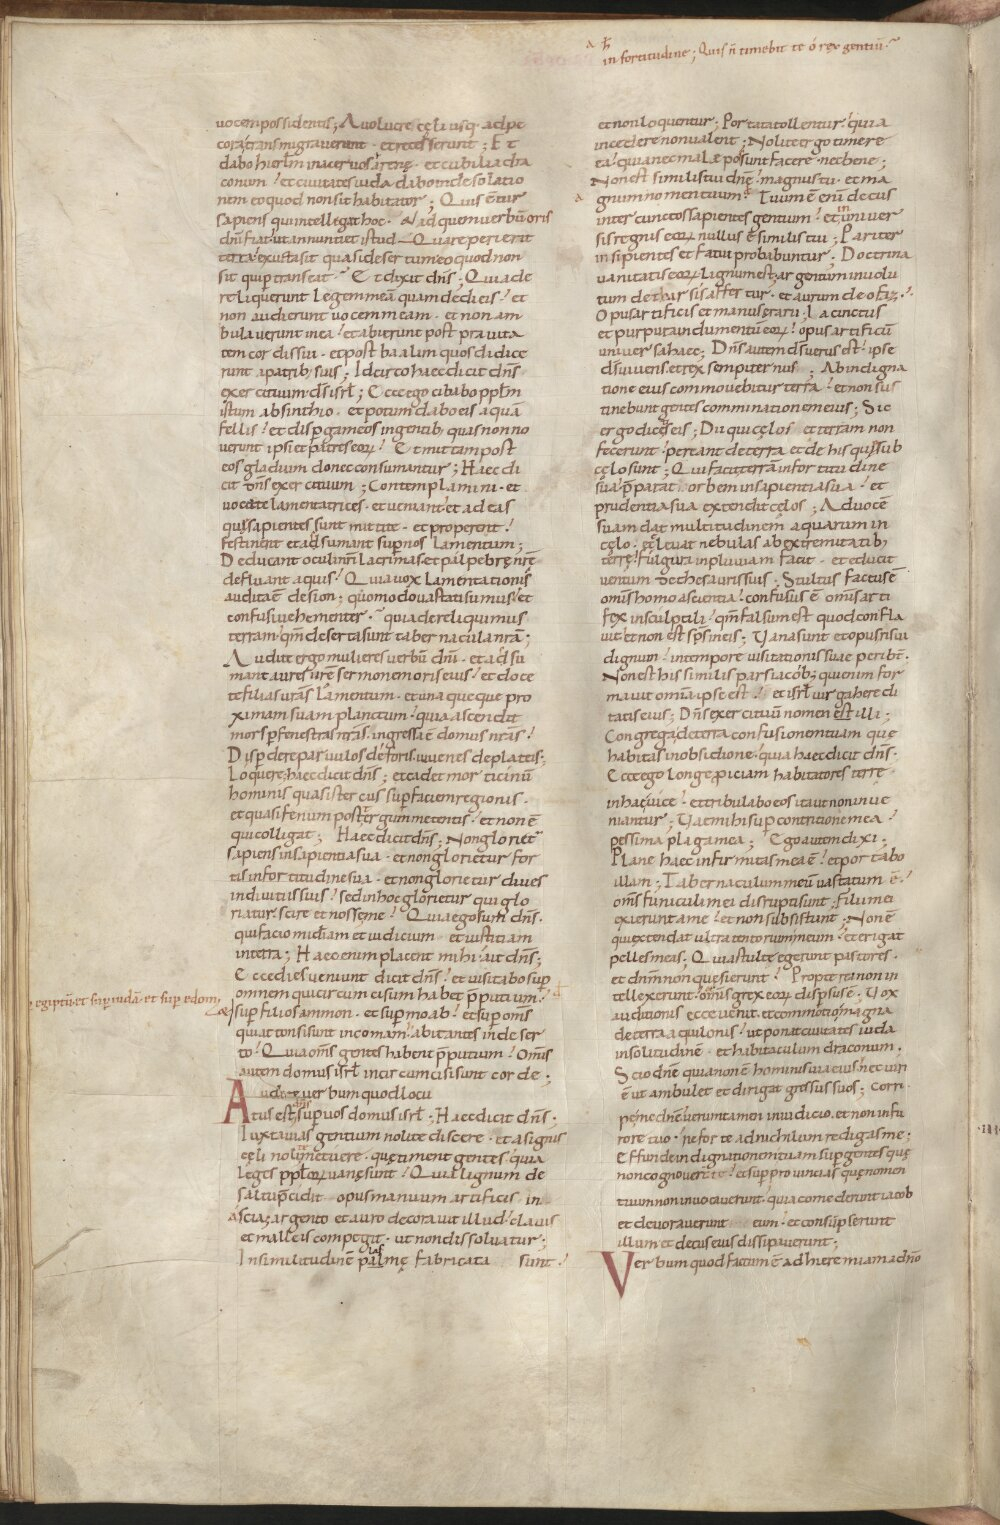 in fortitudine; Quis ñ timebit te ó rex gentiũ.
uocem possidentis; A uolucre cęli usq· ad pe
cora transmigrauerunt· et recesserunt; Et
dabo hierłm in aceruos arenę· et cubilia dra
conum! et ciuitates iuda dabo in desolatio
nem eo quod non sit habitator; Quis ẽ uir
sapiens qui intellegat hoc· & ad quem uerbũ oris
dñi fiat ut annuntiet istud Quare perierit
terra· exusta sit quasi desertum eo quod non
sit qui ptranseat· Et dixit dñs; Quia de
reliquerunt legem meã quam dedi eis! et
non audierunt uocem meam· et non am
bulauerunt in ea! et abierunt post prauita
tem cordis sui· et post baalim quos didice
runt a patrib; suis; Idcirco haec dicit dñs
exercituum ds isrł; Ecce ego cibabo pplm
istum absinthio· et potum dabo eis aquã
fellis! et dispgam eos in gentib; quas non no
uerunt ipsi et patres eorũ! Et mittam post
eos gladium donec consumantur; Haec di
cit dñs exercituum; Contemplamini· et
uocate lamentatrices· et ueniant! et ad eas
quę sapientes sunt mittite· et properent!
Festinent et adsumant sup nos lamentum;
Deducant oculi nr̃i lacrimas· et palpebrę nr̃ę
defluant aquis! Quia uox lamentationis
audita ẽ de sion; quomodo uastati sumus et
confusi uehementer· quia dereliquimus
terram· qm̃ deserta sunt tabernacula nr̃ã;
Audite ergo mulieres uerbũ dñi· et adsu
mant aures ur̃ę sermonem oris eius! et doce
te filias ur̃as lamentum· et una queque pro
ximam suam planctum! quia ascendit
mors p fenestras nr̃as· ingressa ẽ domus nr̃as!
Dispdere paruulos de foris· iuuenes de plateis;
Loquere; haec dicit dñs; et cadet morticinũ
hominis quasi stercus sup faciem regionis·
et quasi fenum post tergum metentis! et non ẽ
qui colligat; Haec dicit dñs; Non glorietur
sapiens in sapientia sua· et non glorietur for
tis in fortitudine sua· et non glorietur diues
in diuitiis suis! sed in hoc glorietur qui glo
riatur· scire et nosse me! Quia ego sum dñs·
qui facio miãm et iudicium et iustitiam
in terra; Haec enim placent mihi ait dñs;
Ecce dies ueniunt dicit dñs! et uisitabo sup
omnem qui circumcisum habet pputium!
egiptũ· et sup iudã· et sup edom
& sup filios ammon· et sup moab! et sup om̃s
qui attonsi sunt in comam· habitantes in deser
to! Quia om̃s gentes habent pputium! Om̃is
autem domus isrł incircumcisi sunt corde;
Audite uerbum quod locu
tus est dñs sup uos domus isrł; Haec dicit dñs;
Iuxta uias gentium nolite discere· et a signis
cęli nolite metuere· quę timent gentes! quia
leges pplorũ uanę sunt! Quia lignum de
saltu pcidit opus manuum artificis in
ascia; argento et auro decorauit illud! clauis
et malleis compegit· ut non dissoluatur;
In similitudinẽ palmę fabricata sunt!
et non loquentur; Portata tollentur! quia
incedere non ualent; Nolite ergo timere
ea! quia nec male possunt facere· nec bene;
Non est similis tui dñe! magnus tu· et ma
gnum nomen tuum! Tuum ẽ enĩ decus
inter cunctos sapientes gentium! et in uniuer
sis regnis eorũ nullus ẽ similis tui; Pariter
insipientes et fatui probabuntur; Doctrina
uanitatis eorũ lignum est; argentum inuolu
tum de tharsis affertur· et aurum de ofaz·
Opus artificis et manus ęrarii; Iacinctus
et purpura indumentũ eorũ! opus artificũ
uniuersa haec; Dñs autem ds uerus est! ipse
ds uiuens· et rex sempiternus; Ab indigna
tione eius commouebitur terra! et non sus
tinebunt gentes comminationem eius; Sic
ergo dicetis eis; Dii qui cęlos et terram non
fecerunt! pereant de terra· et de his quę sub
cęlo sunt; Qui facit terrã in fortitudine
sua· pparat orbem in sapientia sua! et
prudentia sua extendit cęlos; Ad uocẽ
suam dat multitudinem aquarum in
cęlo· et eleuat nebulas ab extremitatib;
terrę! fulgura in pluuiam facit et educit
uentum de thesauris suis; Stultus factus ẽ
om̃is homo a scientia! confusus ẽ om̃is arti
fex in sculptili! qm̃ falsum est quod confla
uit· et non est sps in eis; Vana sunt et opus risui
dignum! in tempore uisitationis suae peribt̃·
Non est his similis pars iacob; qui enim for
mauit om̃ia ipse est! et isrł uirga heredi
tatis eius; Dñs exercituũ nomen est illi;
Congrega de terra confusionem tuam quę
habitas in obsidione! quia haec dicit dñs·
Ecce ego longe piciam habitatores terrę
in hac uice! et tribulabo eos ita ut non inue
niantur; Vae mihi sup contritione mea!
pessima plaga mea; Ego autem dixi;
Plane haec infirmitas mea ẽ! et portabo
illam; Tabernaculum meũ uastatum ẽ!
om̃s funiculi mei disrupti sunt; filii mei
exierunt a me! et non subsistunt; Non ẽ
qui extendat ultra tentorium meum! et erigat
pelles meas; Quia stulte egerunt pastores·
et dnm̃ non quęsierunt! Propterea non in
tellexerunt! om̃is grex eorũ dispsus ẽ; Vox
auditionis ecce uenit· et commotio magna
de terra aquilonis! ut ponat ciuitates iuda
in solitudinẽ· et habitaculum draconum;
Scio dñe quia non ẽ hominis uia eius! nec uiri
ẽ ut ambulet et dirigat gressus suos; Corri
pe me dñe ueruntamen in iudicio· et non in fu
rore tuo· ne forte ad nichilum redigas me;
Effunde indignationem tuam sup gentes quę
non cognouerunt te! et sup prouincias quę nomen
tuum non inuocauerunt! quia comederunt iacob
et deuorauerunt eum! et consũpserunt
illum et decus eius dissipauerunt;
Verbum quod factum ẽ ad hieremiam a dño